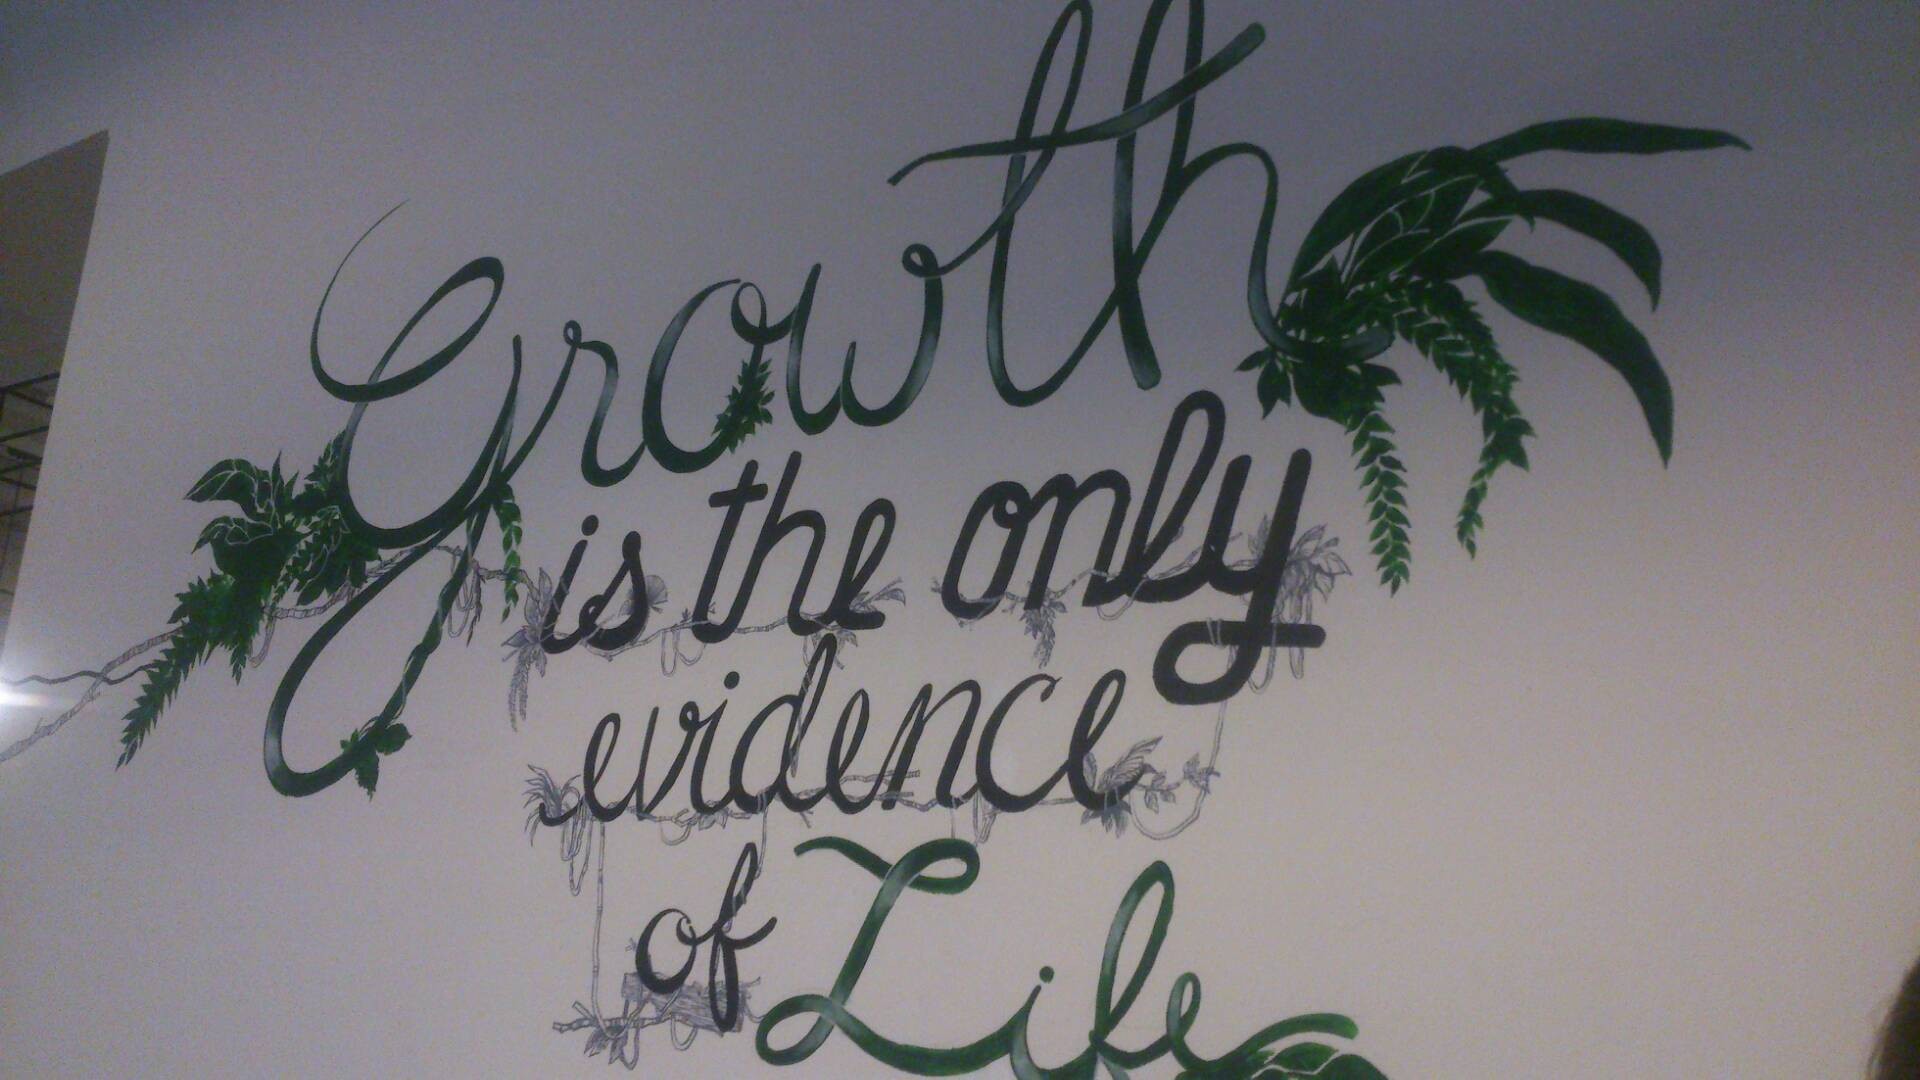 Growth
is the only
evidence
of Life